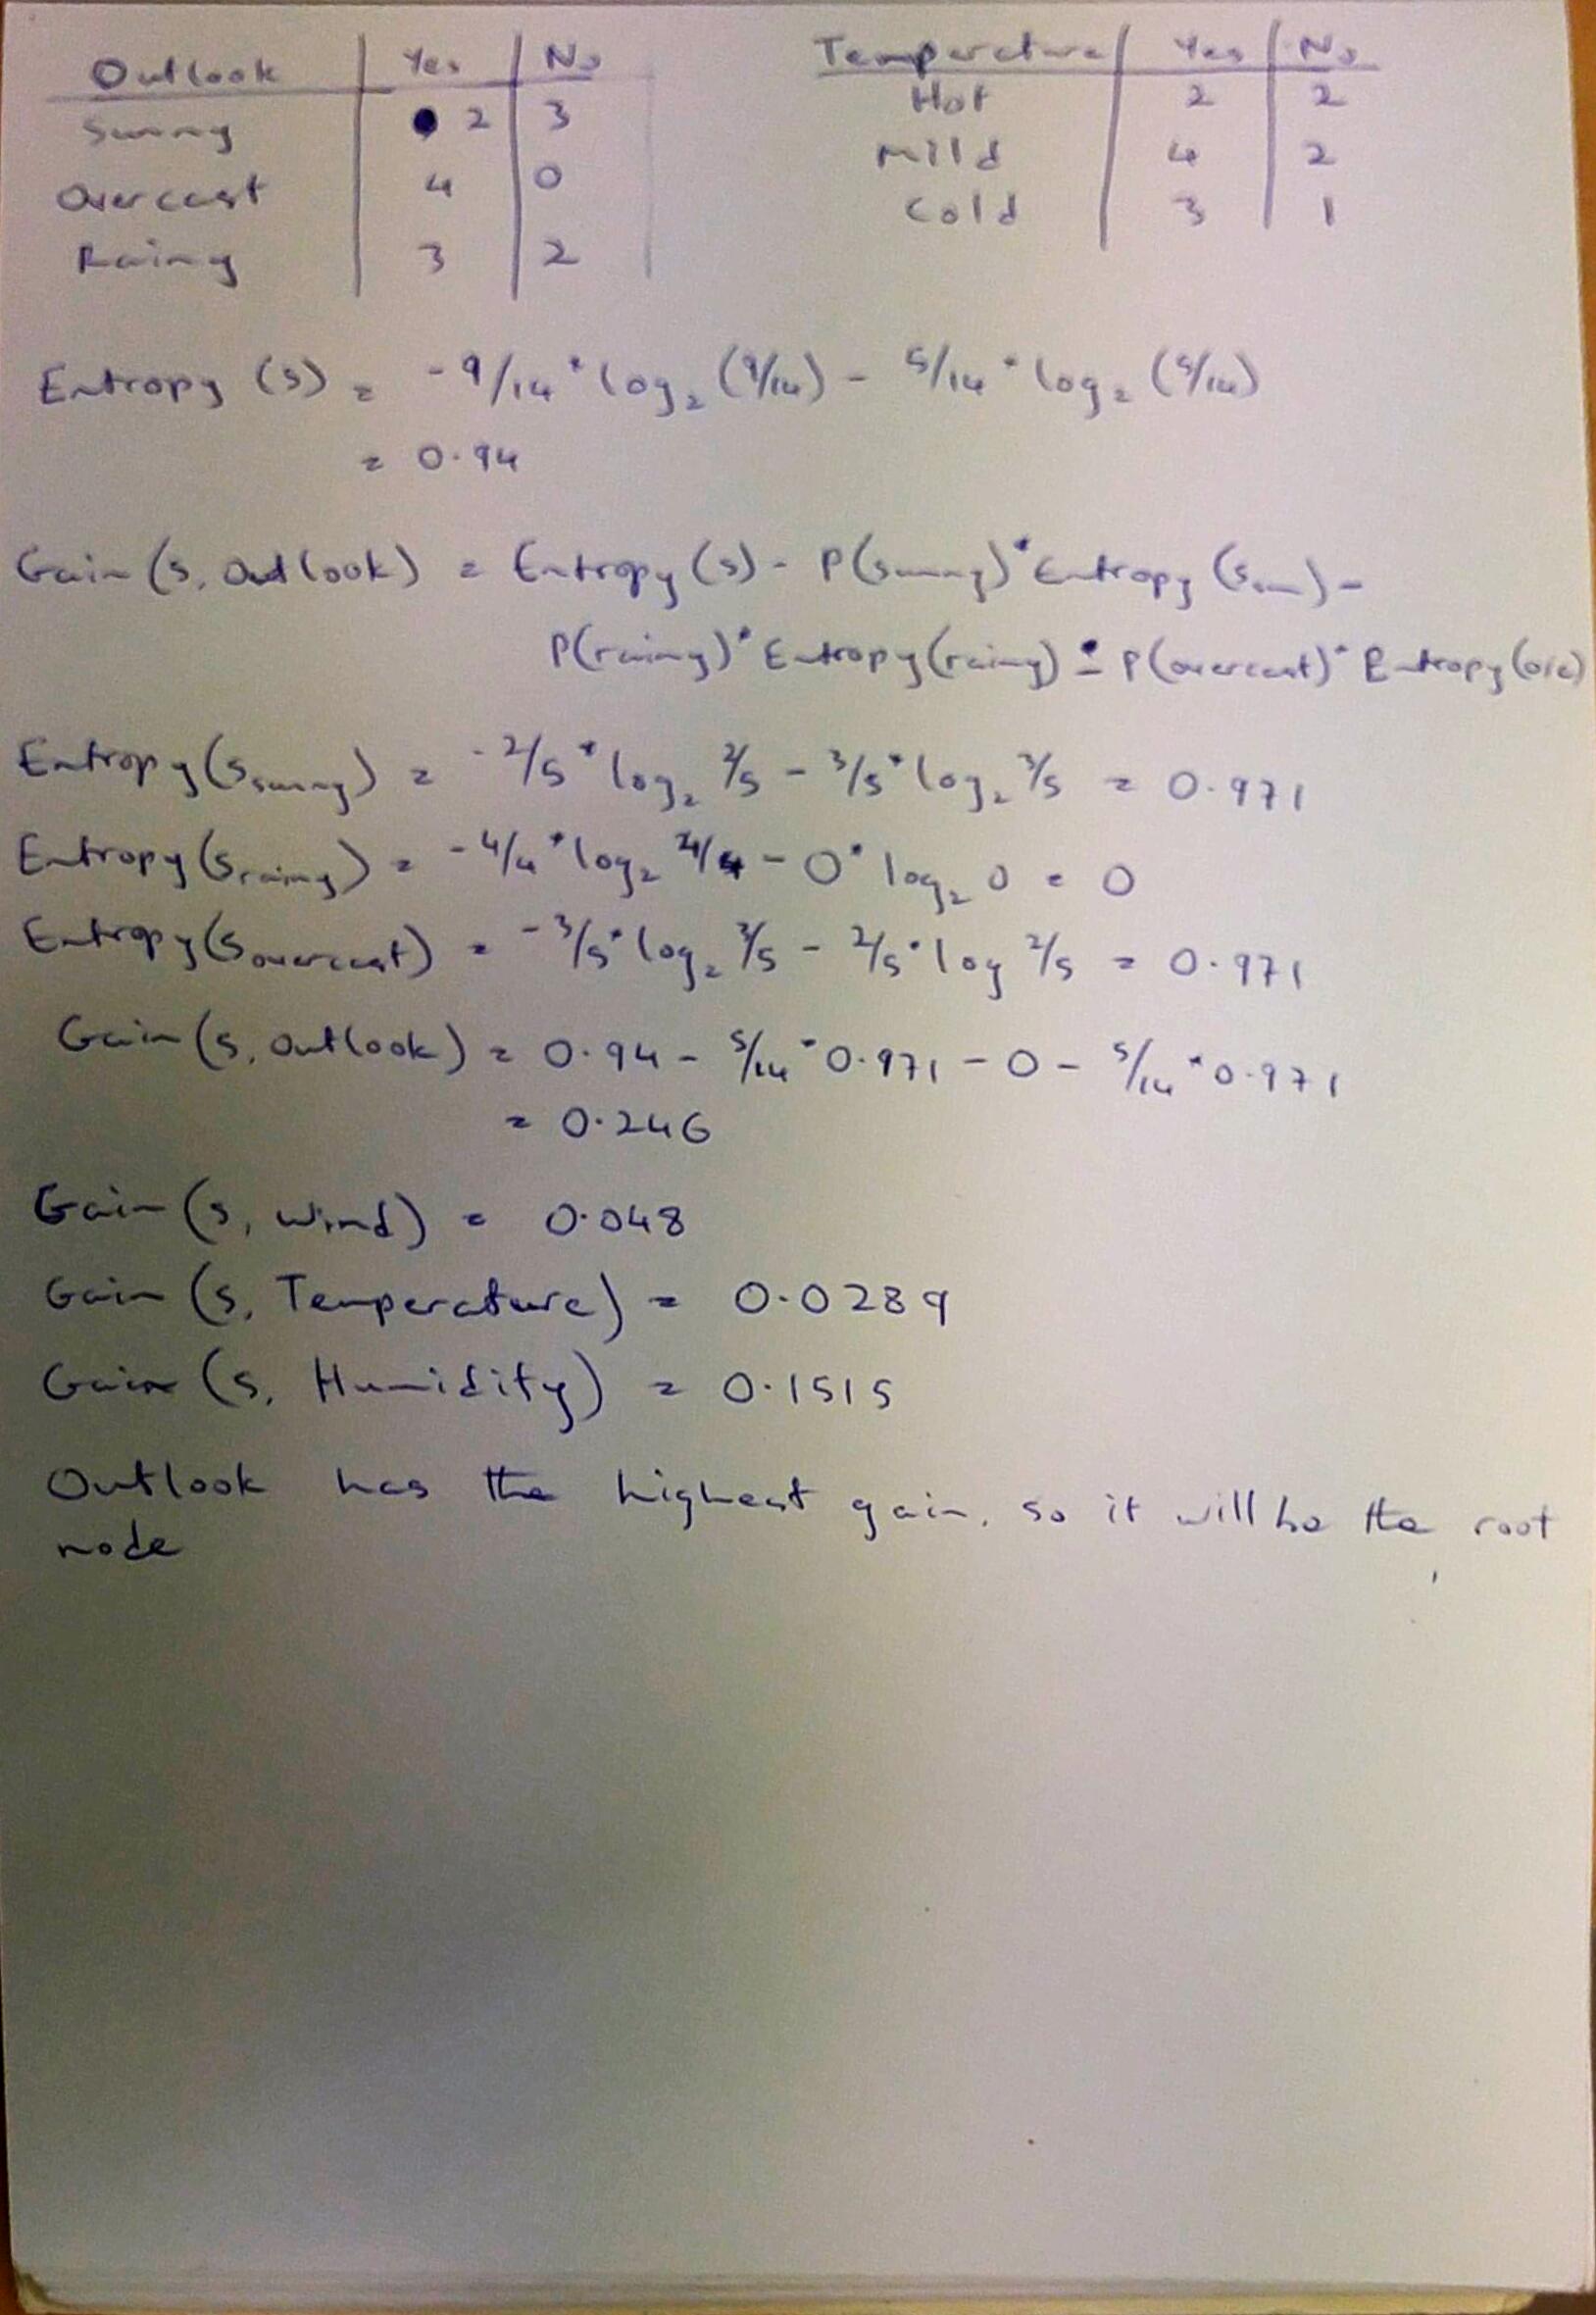 Outlook | Yes | No
Sunny | 2 | 3
Overcast | 4 | 0
Rainy | 3 | 2
Temperature | Yes | No
Hot | 2 | 2
Mild | 4 | 2
Cold | 3 | 1
Entropy (S) = -9/14 * log₂ (9/14) - 5/14 * log₂ (5/14)
= 0.94
Gain (S, Outlook) = Entropy (S) - P(sunny) * Entropy (Sun) -
P(rainy) * Entropy (rainy) - P(overcast) * Entropy (o/c)
Entropy (Ssunny) = -2/5 * log₂ 2/5 - 3/5 * log₂ 3/5 = 0.971
Entropy (Srainy) = -4/4 * log₂ 4/4 - 0 * log₂ 0 = 0
Entropy (Sovercast) = -3/5 * log₂ 3/5 - 2/5 * log 2/5 = 0.971
Gain (S, Outlook) = 0.94 - 5/14 * 0.971 - 0 - 5/14 * 0.971
= 0.246
Gain (S, Wind) = 0.048
Gain (S, Temperature) = 0.0289
Gain (S, Humidity) = 0.1515
Outlook has the highest gain, so it will be the root
node